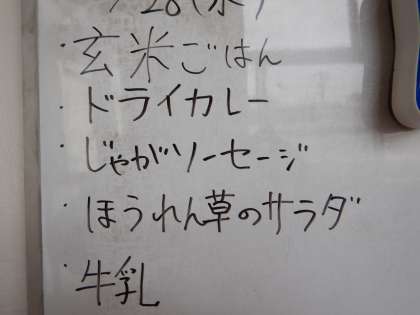 28(水)
・玄米ごはん
・ドライカレー
・じゃがソーセージ
・ほうれん草のサラダ
・牛乳